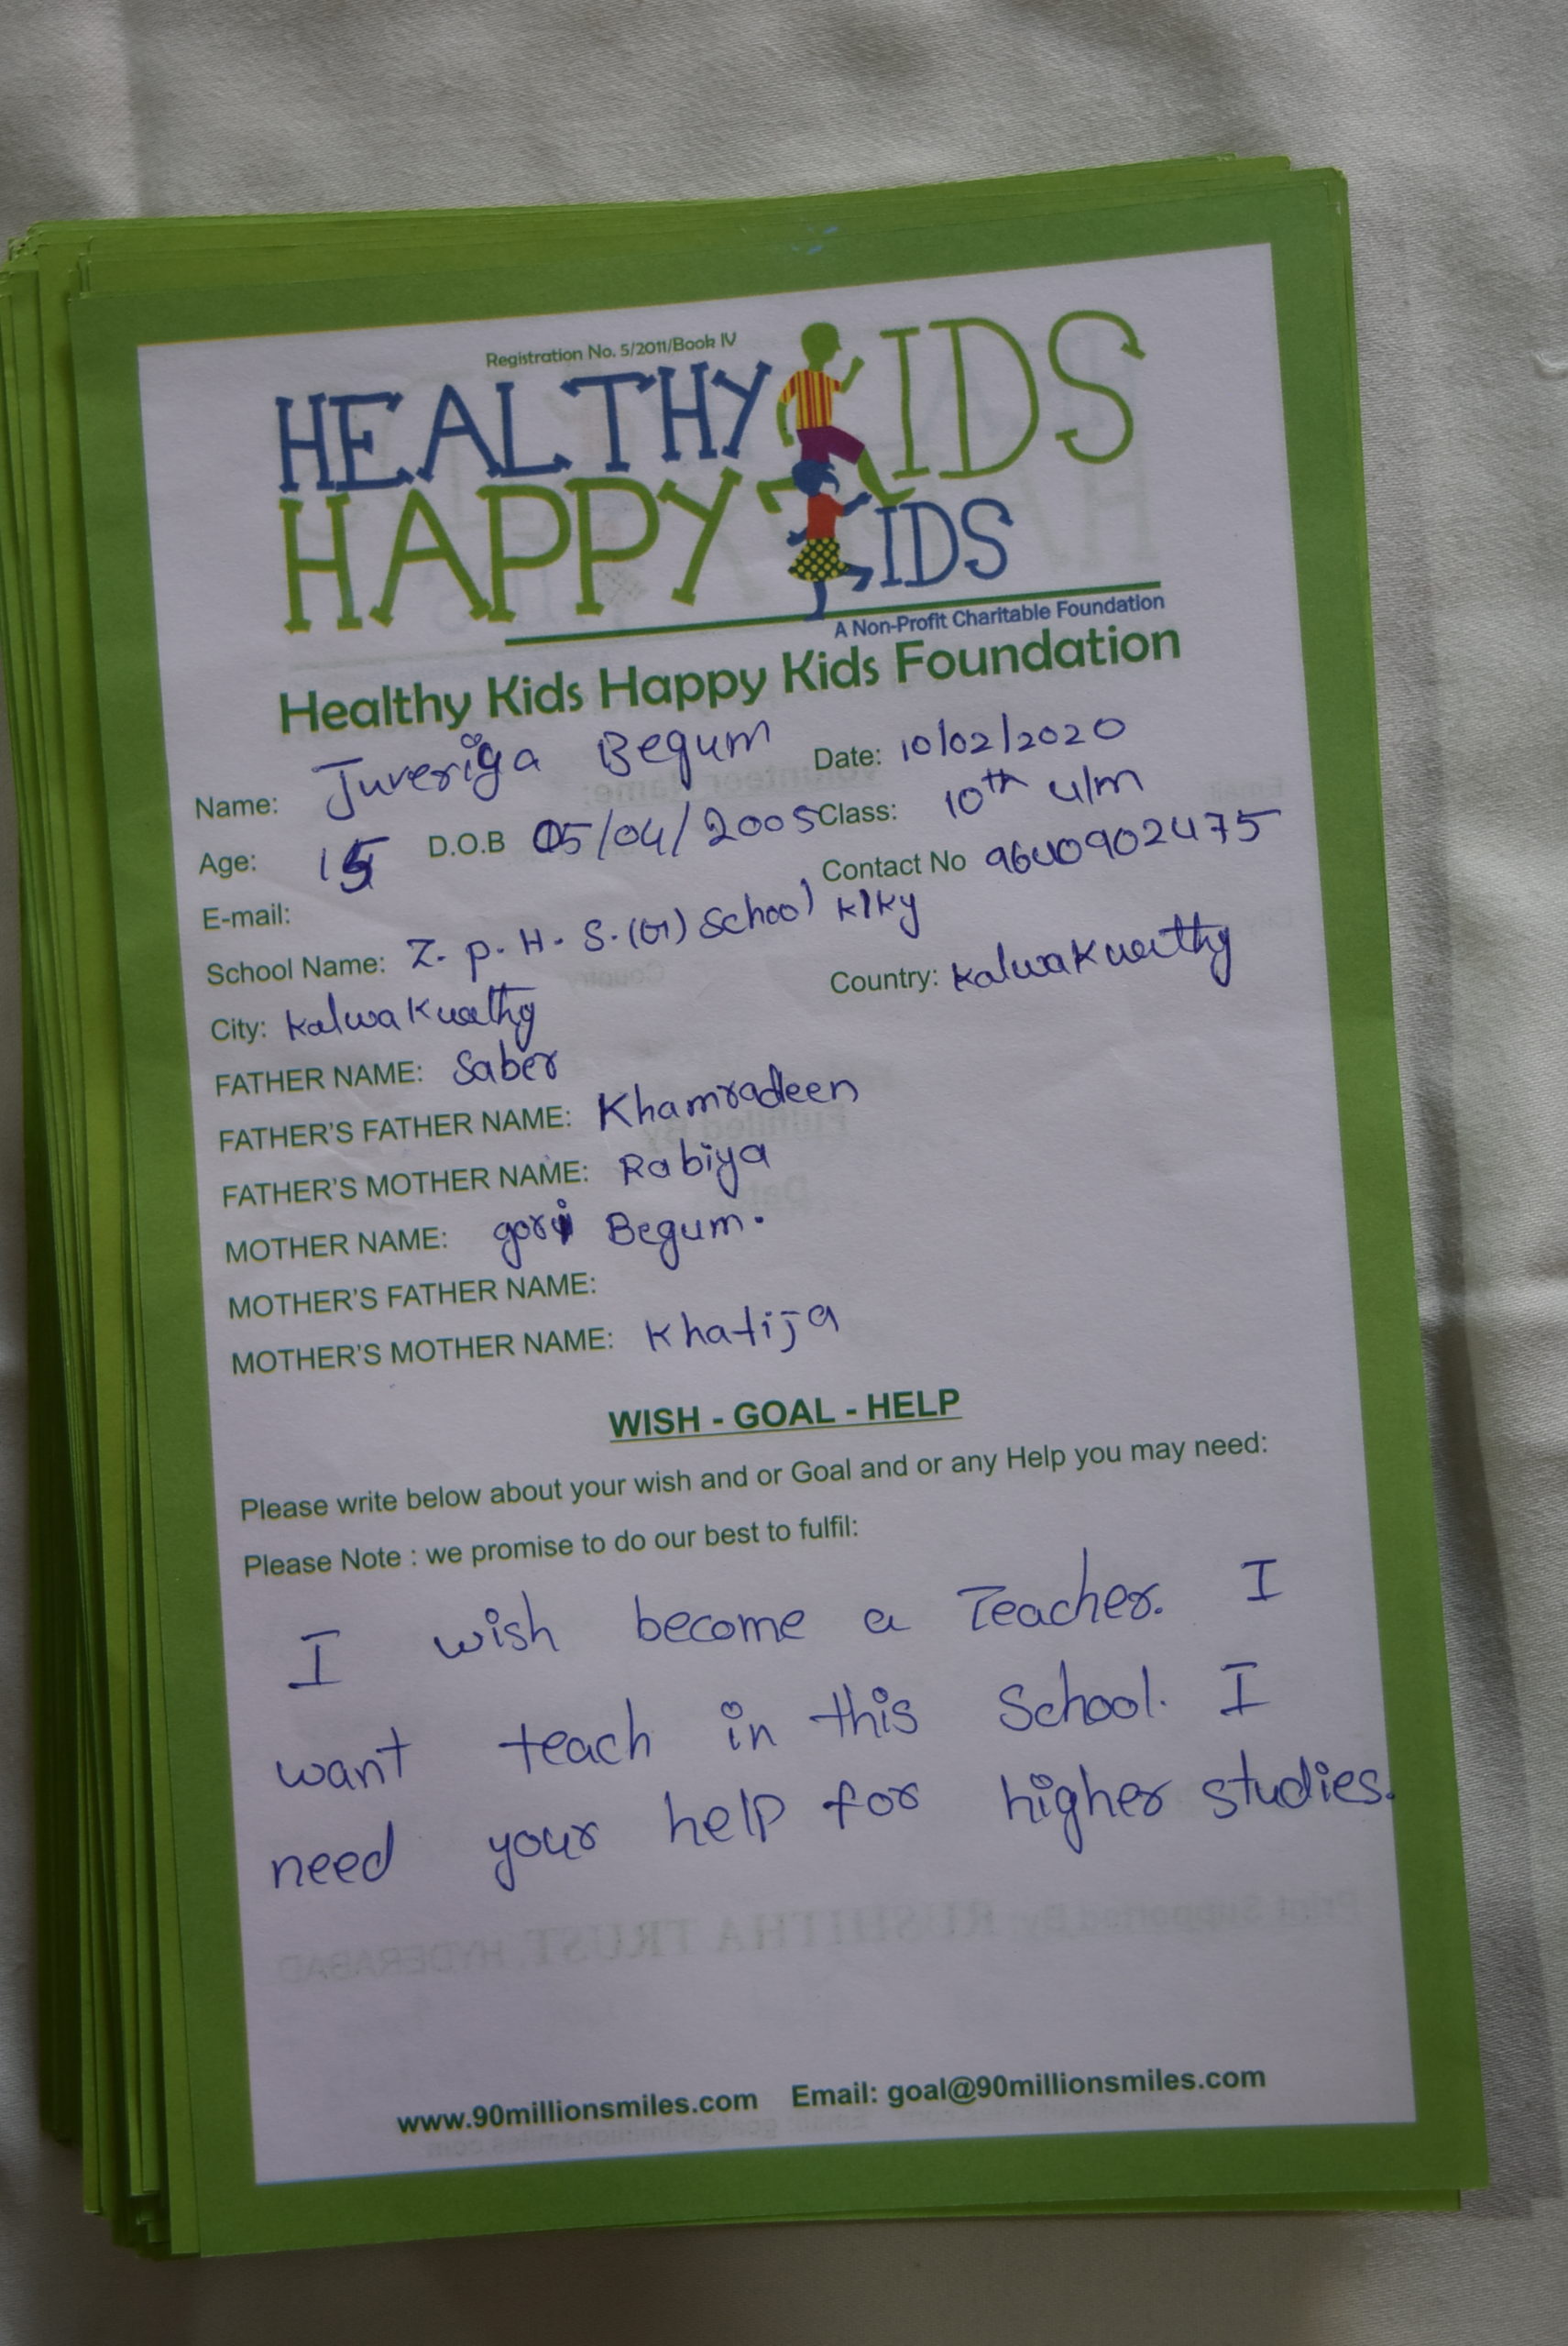 Registration No. 5/2011/Book IV
HEALTHY KIDS
HAPPY KIDS
A Non-Profit Charitable Foundation
Healthy Kids Happy Kids Foundation
Name: Juveriya Begum Date: 10/02/2020
Age: 15 D.O.B 05/04/2005 Class: 10th u/m
E-mail: Contact No 9640902475
School Name: Z. p. H. S. (G) School klky
City: Kalwakurthy Country: Kalwakurthy
FATHER NAME: Saber
FATHER'S FATHER NAME: Khamradeen
FATHER'S MOTHER NAME: Rabiya
MOTHER NAME: gori Begum.
MOTHER'S FATHER NAME:
MOTHER'S MOTHER NAME: Khatija
WISH - GOAL - HELP
Please write below about your wish and or Goal and or any Help you may need:
Please Note : we promise to do our best to fulfil:
I wish become a Teacher. I
want teach in this School. I
need your help for higher studies.
www.90millionsmiles.com Email: goal@90millionsmiles.com